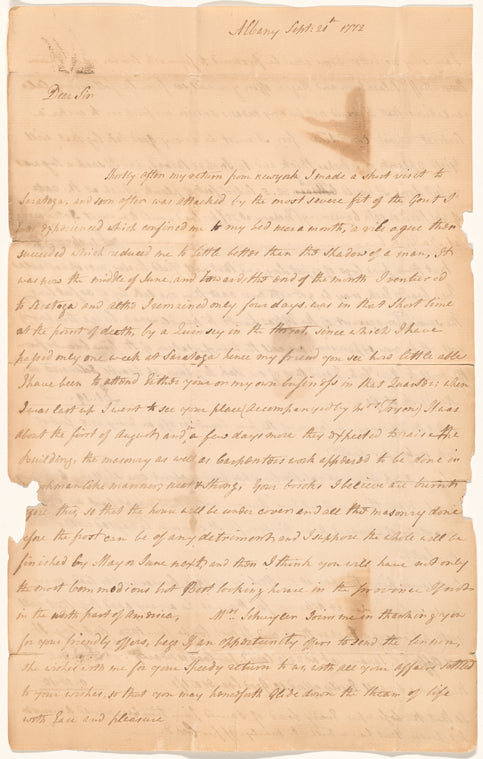 Albany Sept: 20th 1772
Dear Sir
Shortly after my return from newyork I made a short visit to
Saratoga, and soon after was attacked by the most severe fit of the Gout I
experienced which confined me to my bed near a month, a vile ague then
succeeded which reduced me to little better then the shadow of a man, It
was now the middle of June, and toward the end of the month I ventured
to Saratoga and altho I remained only four days, was in that short time
at the point of death, by a Quinsey in the throat, since which I have
passed only one week at Saratoga hence my friend you see how little able
I have been to attend Either your or my own business in that Quarter; when
I was last up I went to see your place (accompanyed by Tryon) It was
about the first of August, and in a few days more they expected to raise the
Building, the masonry as well as Carpenters work appeared to be done in
manner, neat & strong, Your bricks I believe are burnt
this, so that the house will be under cover and all the masonry done
efore the frost can be of any detriment, and I suppose the whole will be
finished by May or June next, and then I think you will have not only
the most commodious but Best looking house in the province If not
in the north part of America, Mrs. Schuyler Joins me in thanking you
for your friendly offers, begs If an opportunity offers to send the
she wishes with me for your Speedy return to us, with all your affairs settled
to your wishes, so that you may henceforth Glide down the stream of life
with Ease and pleasure